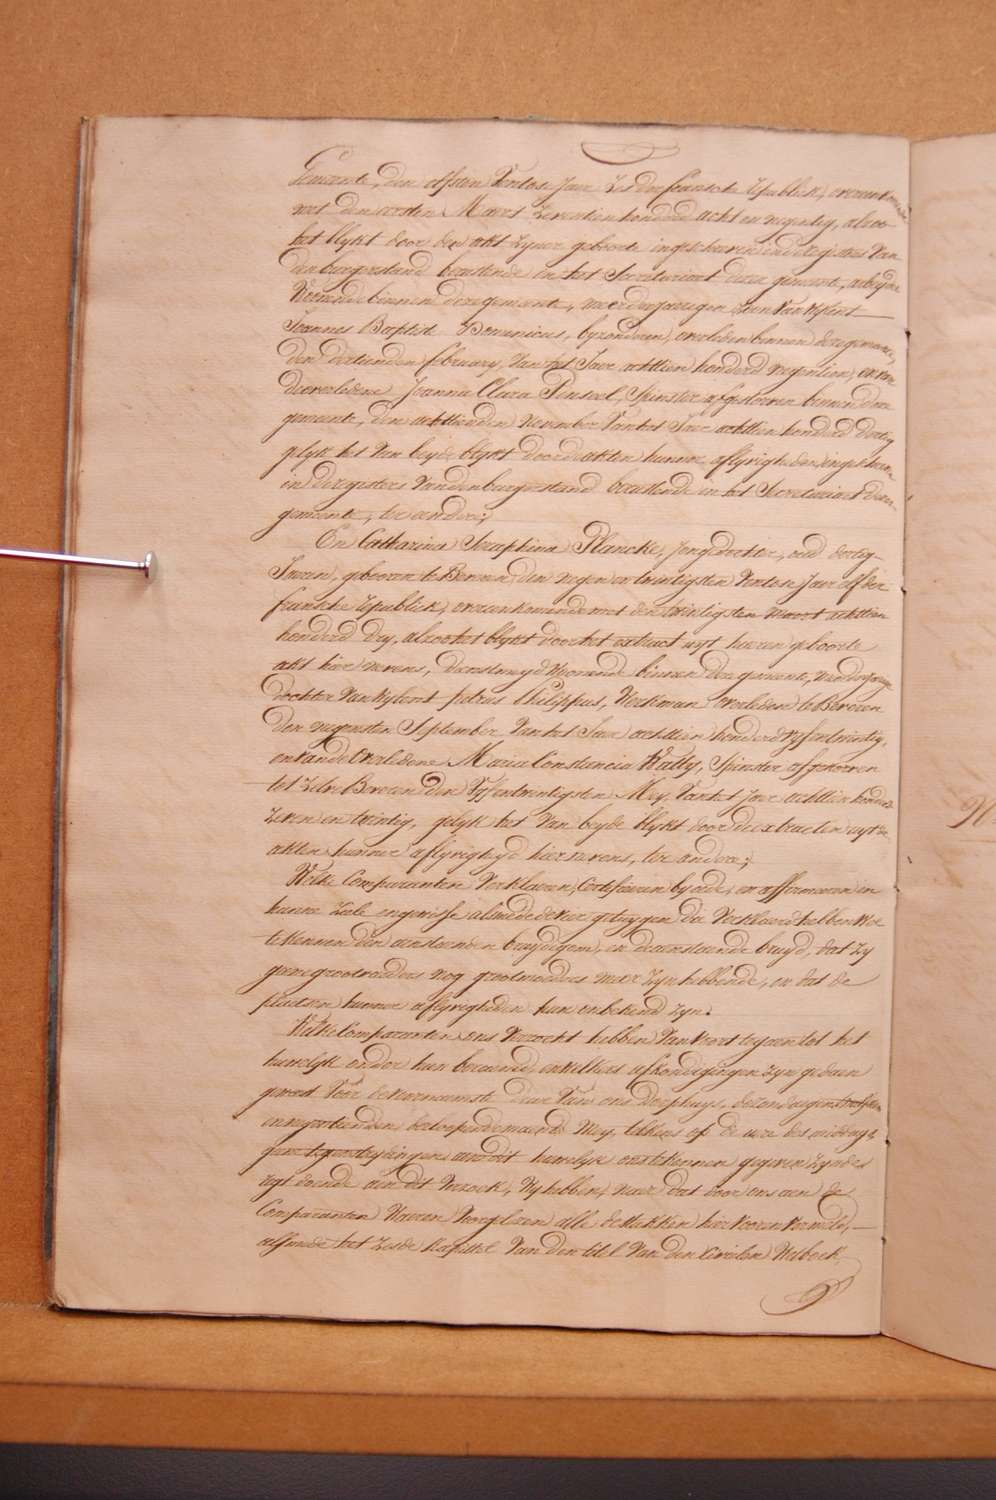 Gemeente, den elfsten Ventose Jaer Zes der fransche Republiek, overeenkomende
met den eersten Maert Zeventien honderd acht en negentig, alzoo
het blykt door den akt zyner geboorte ingeschreven in de registers van
den burgerstand berustende in het Secretariaet dezer gemeente, arbeyder
Woonende binnen deze gemeente, meerderjarigen Zoon van wylent
Joannes Baptist Dominicus, byzonderen, overleden binnen deze gemeente,
den dertienden february, van het Jaer achttien honderd negentien, en van
de overledene Joanna Clara Pinseel, Spinster afgestorven binnen deze
gemeente, den achttienden November van het Jaer achttien honderd dertig
gelyk het van beyde blykt door de akten hunner aflyvigheden ingeschreven
in de registers van den burgerstand berustende in het Secretariaet dezer
gemeente, ter eendre;
En Catharina Josephina Plancke, jonge dochter, oud dertig
Jaeren, gebooren te Beveren den negen en twintigsten Ventose Jaer elf der
fransche Republiek, overeenkomende met den twintigsten maert achttien
honderd dry, alzoo het blykt door het extract uyt haeren geboorte
akt hier nevens, dienstmeyd Woonende binnen deze gemeente, meerderjarige
dochter van wylent petrus Philippus, Werkman overleden te Beveren
den negensten September van het Jaer achttien honderd vyfentwintig,
en van de overledene Maria Constancia Watty, Spinster afgestorven
tot Zelve Beveren den Vyfentwintigsten Mey, van het jaer achttien honderd
Zeven en twintig, gelyk het van beyde blykt door de extracten uyt de
akten hunner aflyvigheyd hier nevens, ter andere;
Welke Comparanten Verklaeren, Certifieeren by eede, en affirmeeren in
hunne Ziele en gewisse alsmede de vier getuygen die Verklaerd hebben wel
te kennen den aenstaenden bruydegom, en de aenstaende bruyd, dat Zy
geene grootvaders nog grootmoeders meer Zyn hebbende, en dat de
plaetsen hunner aflyvigheden hun onbekend Zyn.
Welke Comparanten ons Verzocht hebben van voort te gaen tot het
huwelyk onder hun beraemd, en welkers afkondigingen Zyn gedaen
geweest Voor de Voornaemste deur van ons dorphuys, de zondagen
en negentienden der loopende maend Mey, telkens op de uere des middags,
geene tegenstrydingen aen dit huwelyk ons te kennen gegeven Zynde
regt doende aen dit Verzoek, Wy hebben, naer dat door ons aen de
Comparanten Waeren Voorgelezen alle de stukken hier vooren vermeld,
alsmede het Zesde Kapittel van den titel van den Civielen Wetboek,